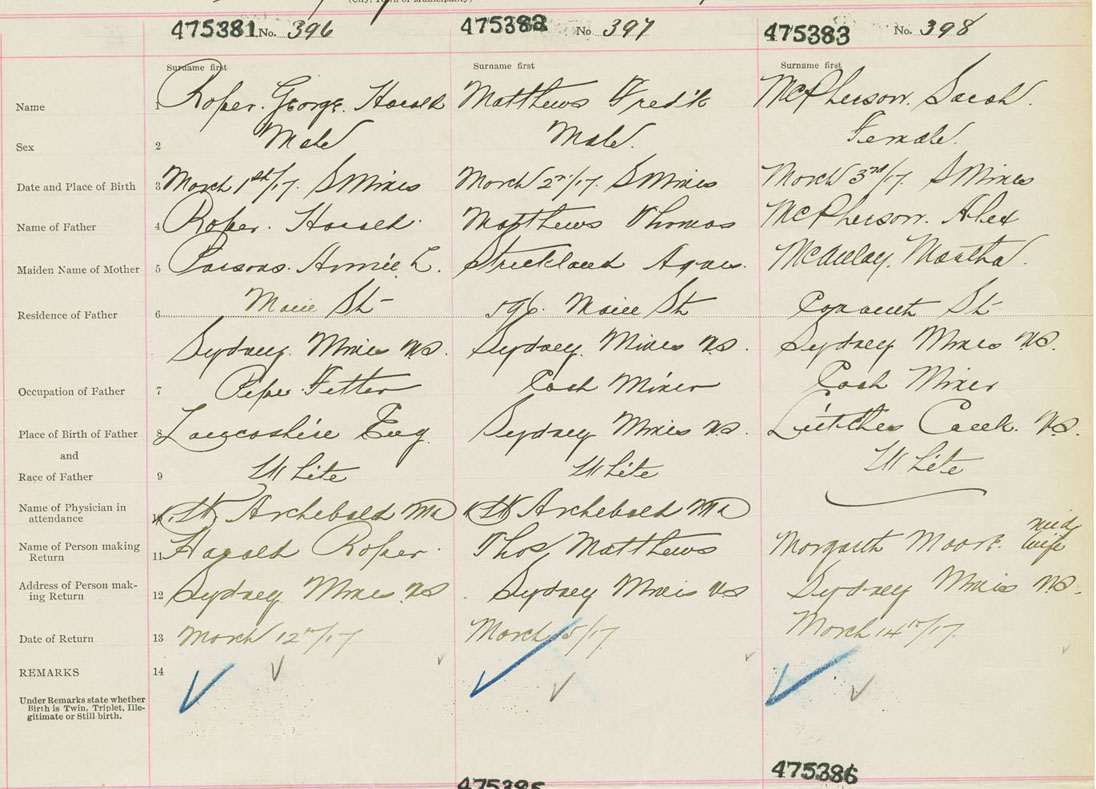 475381 No. 396 475382 No 397 475383 No. 398
Surname first Surname first Surname first
Name 1 Roper. George. Harold Matthews Fred'k McPherson. Sarah.
Sex 2 Male Male. Female.
Date and Place of Birth 3 March 1st/17. S Mines March 2nd/17. S Mines March 3rd/17 S Mines
Name of Father 4 Roper. Harold. Matthews Thomas McPherson. Alex
Maiden Name of Mother 5 Parsons. Annie L. Strickland Agnes. McAulay. Martha.
Residence of Father 6 Main St 596. Main St St
Sydney Mines NS. Sydney Mines NS. Sydney Mines NS.
Occupation of Father 7 Pipe Fitter Coal Miner Coal Miner
Place of Birth of Father 8 Lancashire Eng Sydney Mines NS. Creek. NS.
and
Race of Father 9 White White White
Name of Physician in
attendance Archibald MD Archibald MD
mid
Name of Person making
Return 11 Harold Roper. Thos Matthews Moore. wife
Address of Person mak-
ing Return 12 Sydney Mines NS. Sydney Mines NS Sydney Mines NS.
Date of Return 13 March 12th/17 March 15/17 March 14th/17.
REMARKS 14
Under Remarks state whether
Birth is Twin, Triplet, Ille-
gitimate or Still-birth.
475386
475385